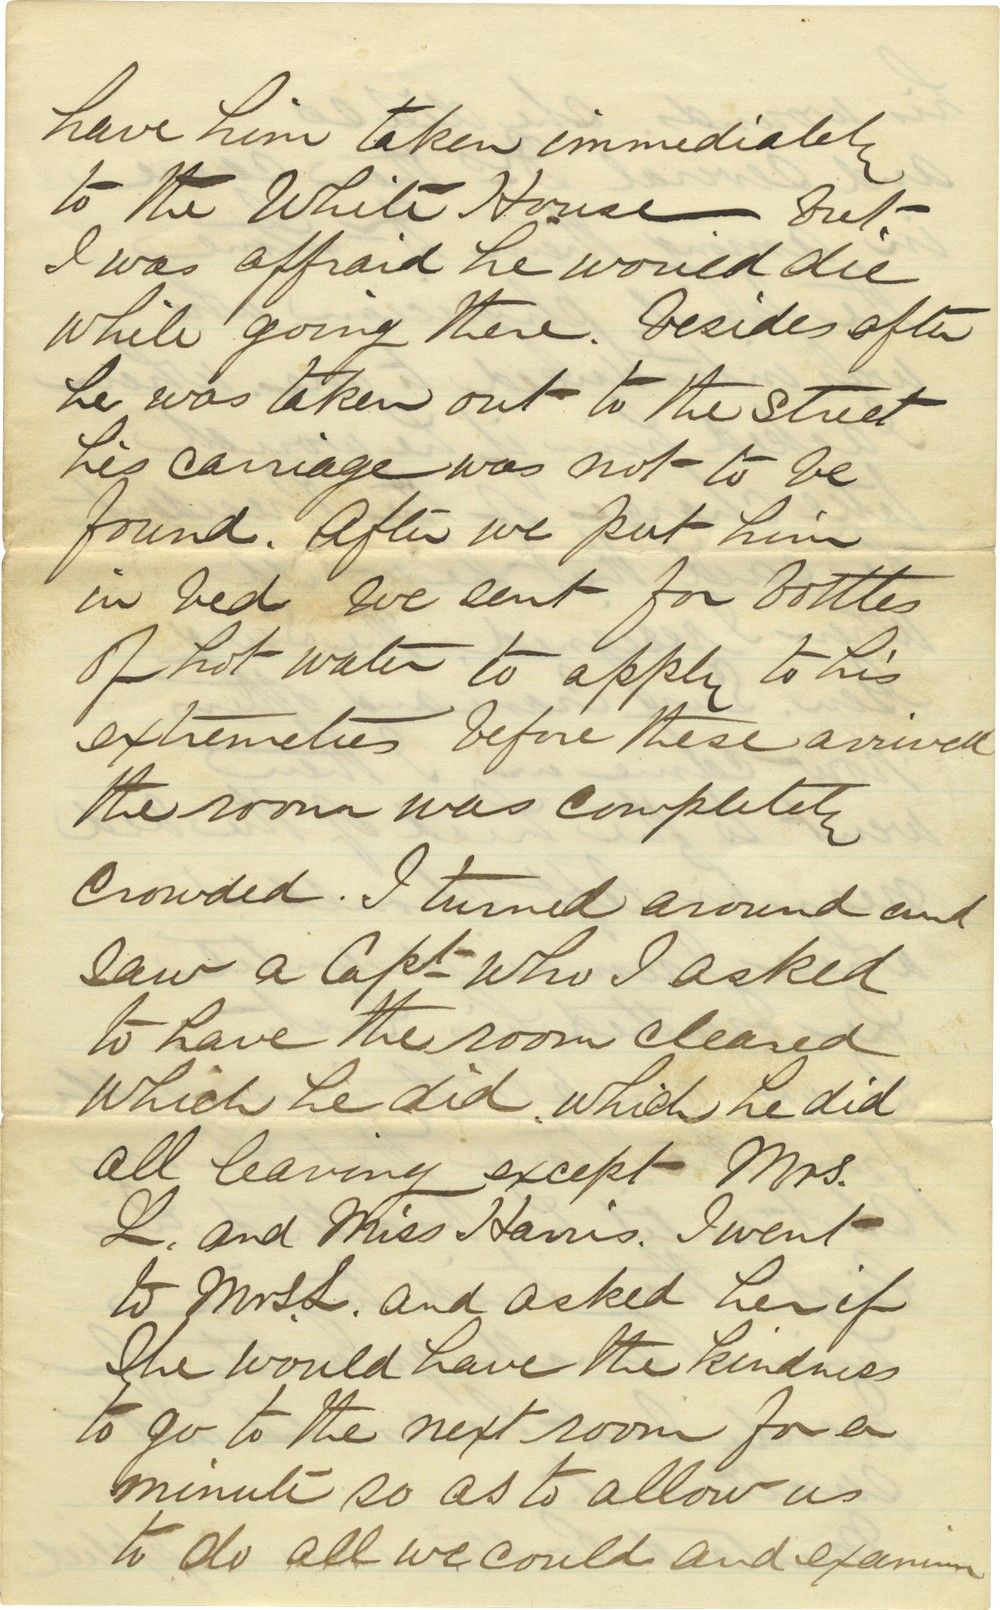 have him taken immediately
to the White House — but
I was affraid he would die
while going there. Besides after
he was taken out to the street
his carriage was not to be
found. After we put him
in bed we sent for bottles
of hot water to apply to his
extremeties before these arrived
the room was completely
crowded. I turned around and
saw a Capt. who I asked
to have the room cleared
which he did, which he did
all leaving except Mrs.
L. and Miss Harris. I went
to Mrs. L. and asked her if
she would have the kindness
to go to the next room for a
minute so as to allow us
to do all we could and examine